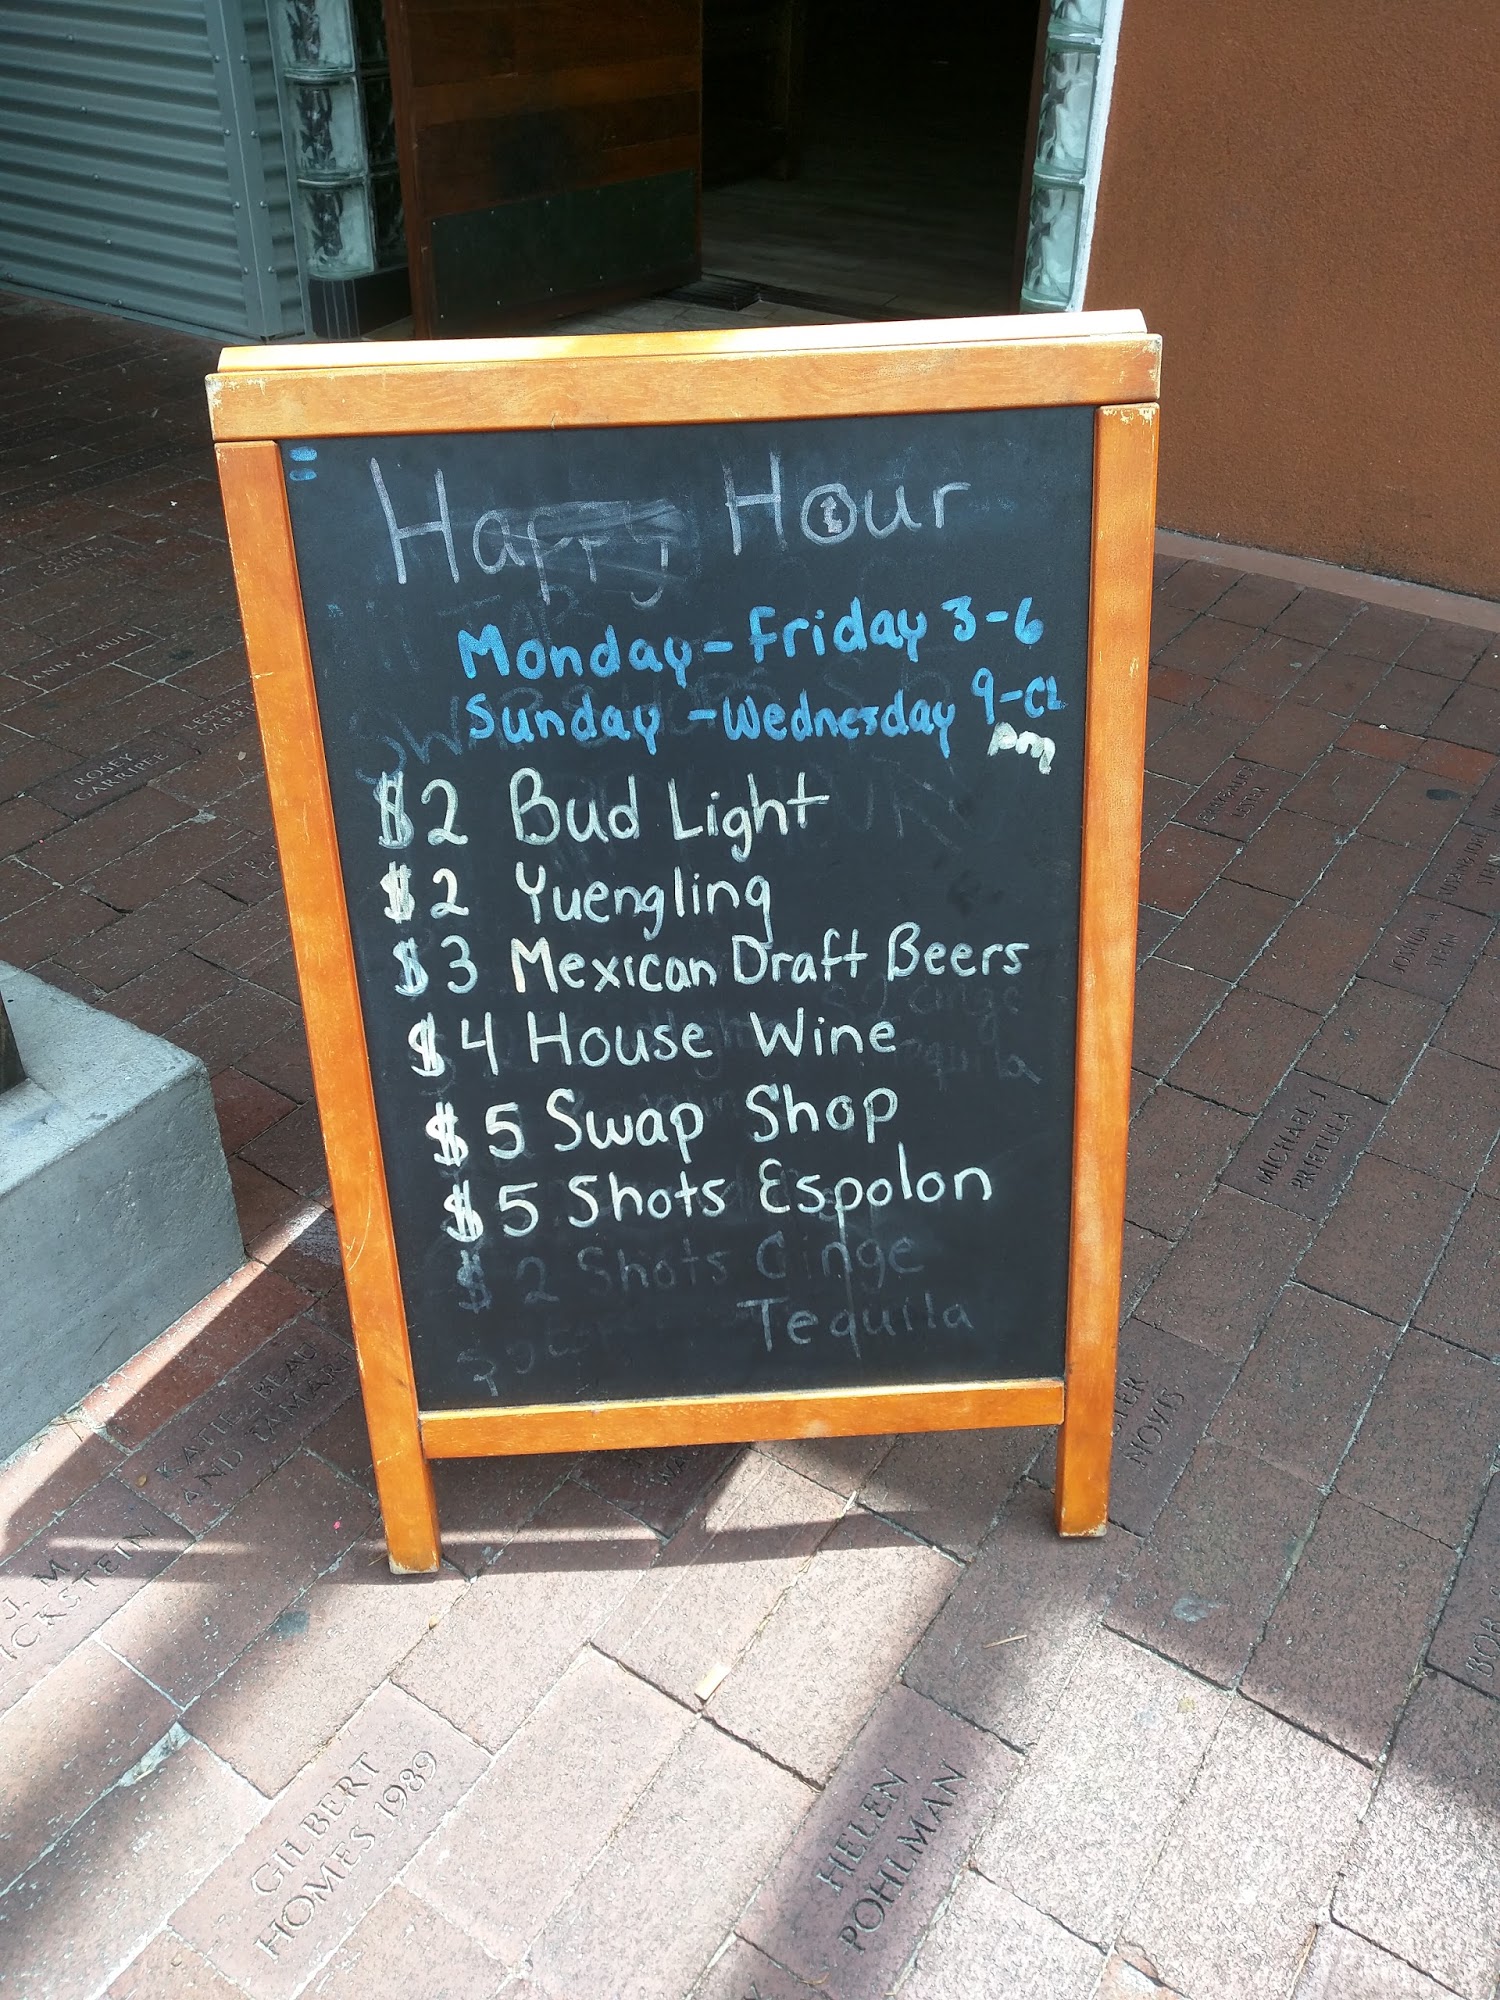 Happy Hour
Monday - Friday 3-6
Sunday - Wednesday 9-CL
pm
$2 Bud Light
$2 Yuengling
$3 Mexican Draft Beers
$4 House Wine
$5 Swap Shop
$5 Shots Espolon
$2 Shots Ginge
Tequila
ANN Y. BULL
LESTER
ROSEY
CARRIPEE
LESTER
JOSHUA A
STEIN
MICHAEL J
PRIETULA
NOVIS
KATIE BEAU
AND TAMARI
J. M.
GILBERT
HOMES 1989
HELEN
POHLMAN